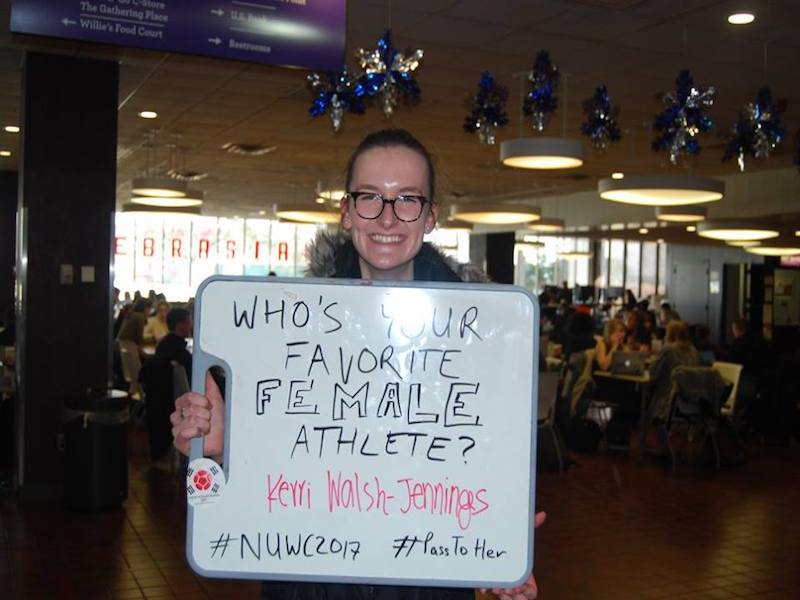 The Gathering Place
← Willie's Food Court
→ U.S. Bank
→ Restrooms
EBRASKA
WHO'S YOUR
FAVORITE
FEMALE
ATHLETE?
Kerri Walsh-Jennings
#NUWC2017 #PassToHer